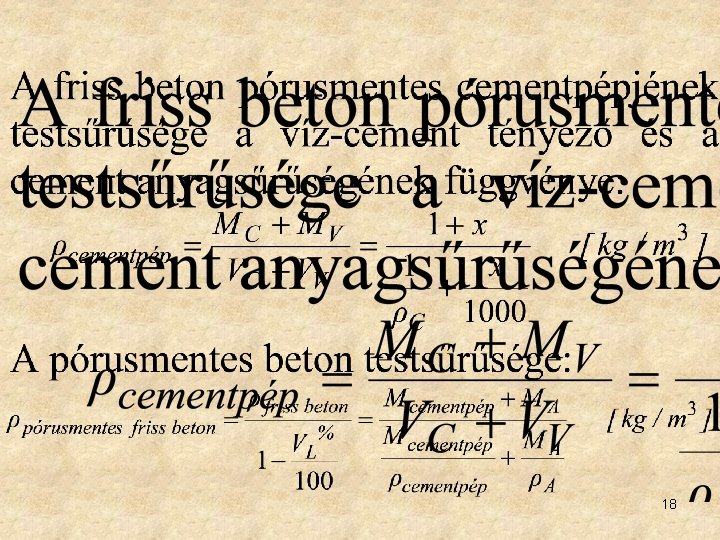 A friss beton pórusmentes cementpépjének
testsűrűsége a víz-cement tényező és a
cement anyagsűrűségének függvénye:
ρ cementpép = (M_C + M_V) / (V_C + V_V) = (1 + x) / (1/ρ_C + x/1000) [ kg / m³ ]
A pórusmentes beton testsűrűsége:
ρ pórusmentes friss beton = ρ friss beton / (1 − V_L% / 100) = (M cementpép + M_A) / (M cementpép / ρ cementpép + M_A / ρ_A) [ kg / m³ ]
A friss beton pórusmente
testsűrűsége a víz-cem
cement anyagsűrűségéne
ρ cementpép = (M_C + M_V) / (V_C + V_V) = 1 / ρ
18